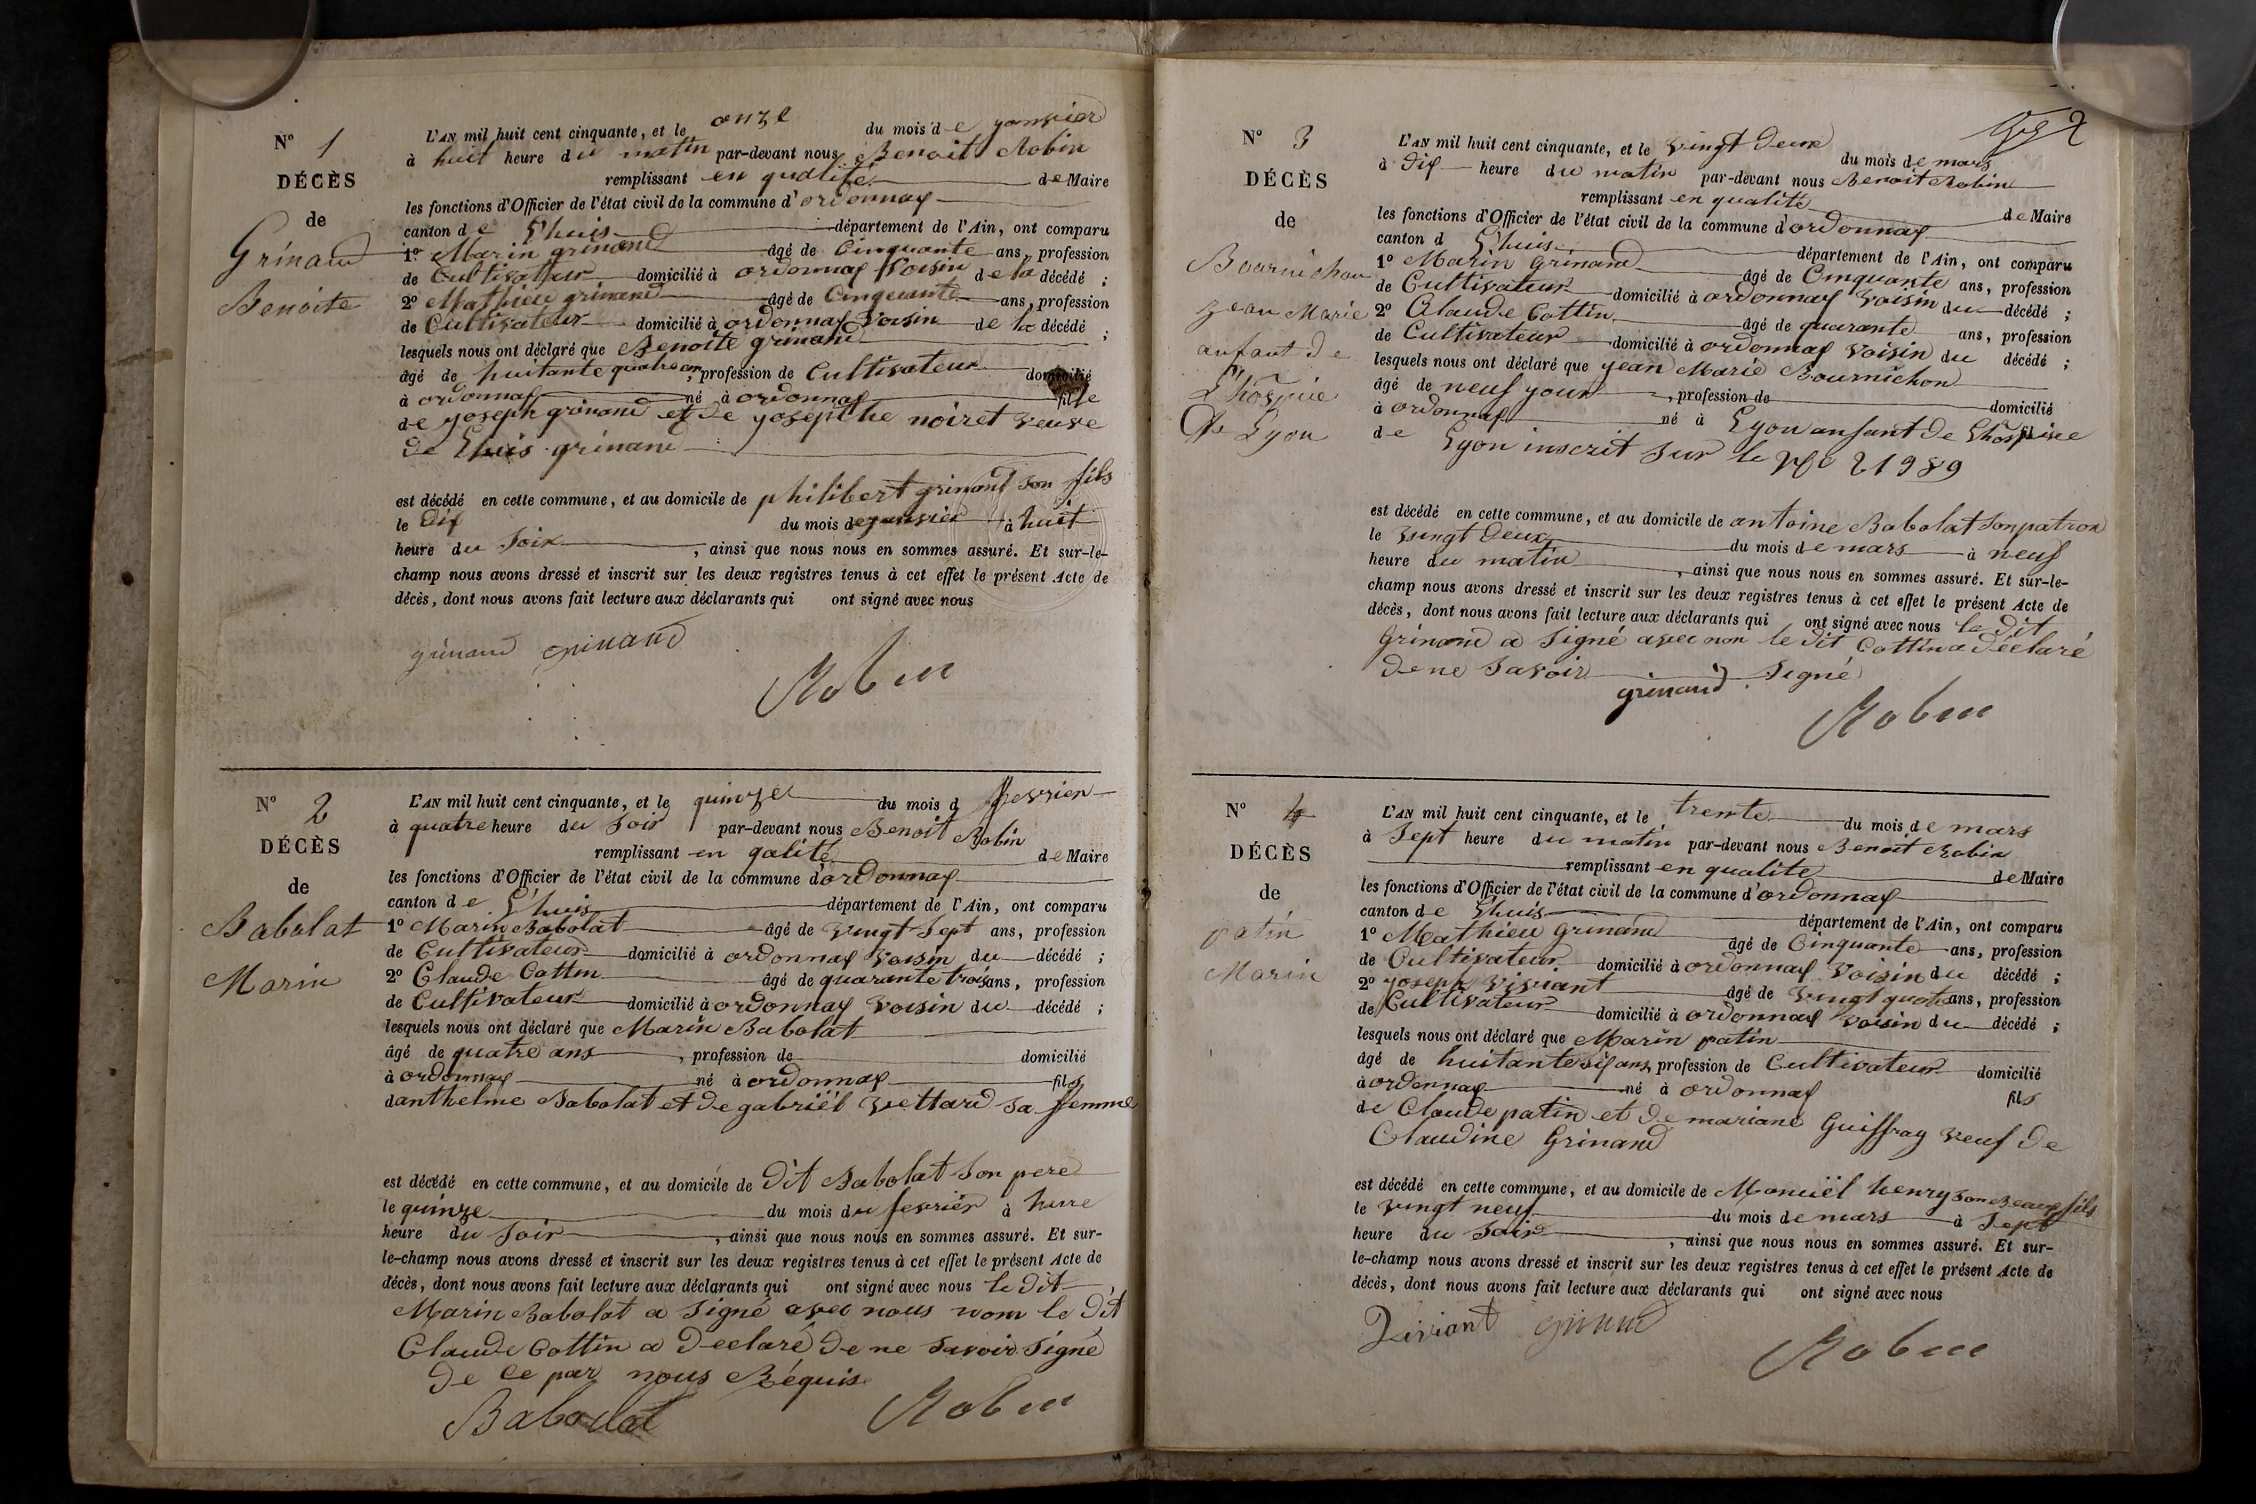 N° 1
DÉCÈS
de
Grinand
Benoite
L'AN mil huit cent cinquante, et le onze du mois de janvier
à huit heure du matin par-devant nous Benoit Robin
remplissant en qualité de Maire
les fonctions d'Officier de l'état civil de la commune d'ordonnas
canton de Lhuis département de l'Ain, ont comparu
1° Marin grinand âgé de Cinquante ans, profession
de Cultivateur domicilié à ordonnas voisin de la décédé ;
2° Mathieu grinand âgé de Cinquante ans, profession
de Cultivateur domicilié à ordonnas voisin de la décédé ;
lesquels nous ont déclaré que Benoite grinand
âgé de huitante quatre an, profession de Cultivateur domicilié
à ordonnas né à ordonnas fille
de joseph grinand et de josephthe noiret veuve
de Lhuis grinand
est décédé en cette commune, et au domicile de philibert grinand son fils
le dix du mois de janvier à huit
heure du soir, ainsi que nous nous en sommes assuré. Et sur-le-
champ nous avons dressé et inscrit sur les deux registres tenus à cet effet le présent Acte de
décès, dont nous avons fait lecture aux déclarants qui ont signé avec nous
grinand grinand
Robin
N° 2
DÉCÈS
de
Babolat
Marin
L'AN mil huit cent cinquante, et le quinze du mois d fevrier
à quatre heure du soir par-devant nous Benoit Robin
remplissant en qalité de Maire
les fonctions d'Officier de l'état civil de la commune d'ordonnas
canton de L'huis département de l'Ain, ont comparu
1° Marin Babolat âgé de vingt sept ans, profession
de Cultivateur domicilié à ordonnas voisin du décédé ;
2° Claude Cottin âgé de quarante trois ans, profession
de Cultivateur domicilié à ordonnas voisin du décédé ;
lesquels nous ont déclaré que Marin Babolat
âgé de quatre ans, profession de domicilié
à ordonnas né à ordonnas fils
danthelme Babolat et de gabriël vettard sa femme
est décédé en cette commune, et au domicile de dit Babolat son pere
le quinze du mois du fevrier à hure
heure du soir, ainsi que nous nous en sommes assuré. Et sur-
le-champ nous avons dressé et inscrit sur les deux registres tenus à cet effet le présent Acte de
décès, dont nous avons fait lecture aux déclarants qui ont signé avec nous le dit
Marin Babolat a signé avec nous nom le dit
Claude Cottin a declaré de ne savoir signé
de ce par nous Réquis
Babolat Robin
2
N° 3
DÉCÈS
de
Bournichon
jean Marie
anfant de
L'hospice
de Lyon
L'AN mil huit cent cinquante, et le vingt deux du mois de mars
à dix heure du matin par-devant nous Benoit Robin
remplissant en qualité de Maire
les fonctions d'Officier de l'état civil de la commune d'ordonnas
canton d Lhuis département de l'Ain, ont comparu
1° Marin Grinand âgé de Cinquante ans, profession
de Cultivateur domicilié à ordonnas voisin du décédé ;
2° Claude Cottin âgé de quarante ans, profession
de Cultivateur domicilié à ordonnas voisin du décédé ;
lesquels nous ont déclaré que jean Marie Bournichon
âgé de neuf jour, profession de domicilié
à ordonnas né à Lyon anfant de Lhospice fil
de Lyon inscrit sur le 21989
est décédé en cette commune, et au domicile de antoine Babolat son patron
le vingt deux du mois de mars à neuf
heure du matin, ainsi que nous nous en sommes assuré. Et sur-le-
champ nous avons dressé et inscrit sur les deux registres tenus à cet effet le présent Acte de
décès, dont nous avons fait lecture aux déclarants qui ont signé avec nous le dit
Grinand a signé avec non le dit Cottin a déclaré
de ne savoir signé
grinand
Robin
N° 4
DÉCÈS
de
patin
Marin
L'AN mil huit cent cinquante, et le trente du mois de mars
à sept heure du matin par-devant nous Benoit Robin
remplissant en qualite de Maire
les fonctions d'Officier de l'état civil de la commune d'ordonnas
canton de Lhuis département de l'Ain, ont comparu
1° Mathieu Grinand âgé de Cinquante ans, profession
de Cultivateur domicilié à ordonnas voisin du décédé ;
2° joseph viviant âgé de vingt quatre ans, profession
de Cultivateur domicilié à ordonnas voisin du décédé ;
lesquels nous ont déclaré que Marin patin
âgé de huitante six ans, profession de Cultivateur domicilié
à ordonnas né à ordonnas fils
de Claude patin et de mariane Guiffray veuf de
Claudine Grinand
est décédé en cette commune, et au domicile de Manuël henry son Beaux fils
le vingt neuf du mois de mars à sept
heure du soir, ainsi que nous nous en sommes assuré. Et sur-
le-champ nous avons dressé et inscrit sur les deux registres tenus à cet effet le présent Acte de
décès, dont nous avons fait lecture aux déclarants qui ont signé avec nous
Viviant grinand
Robin